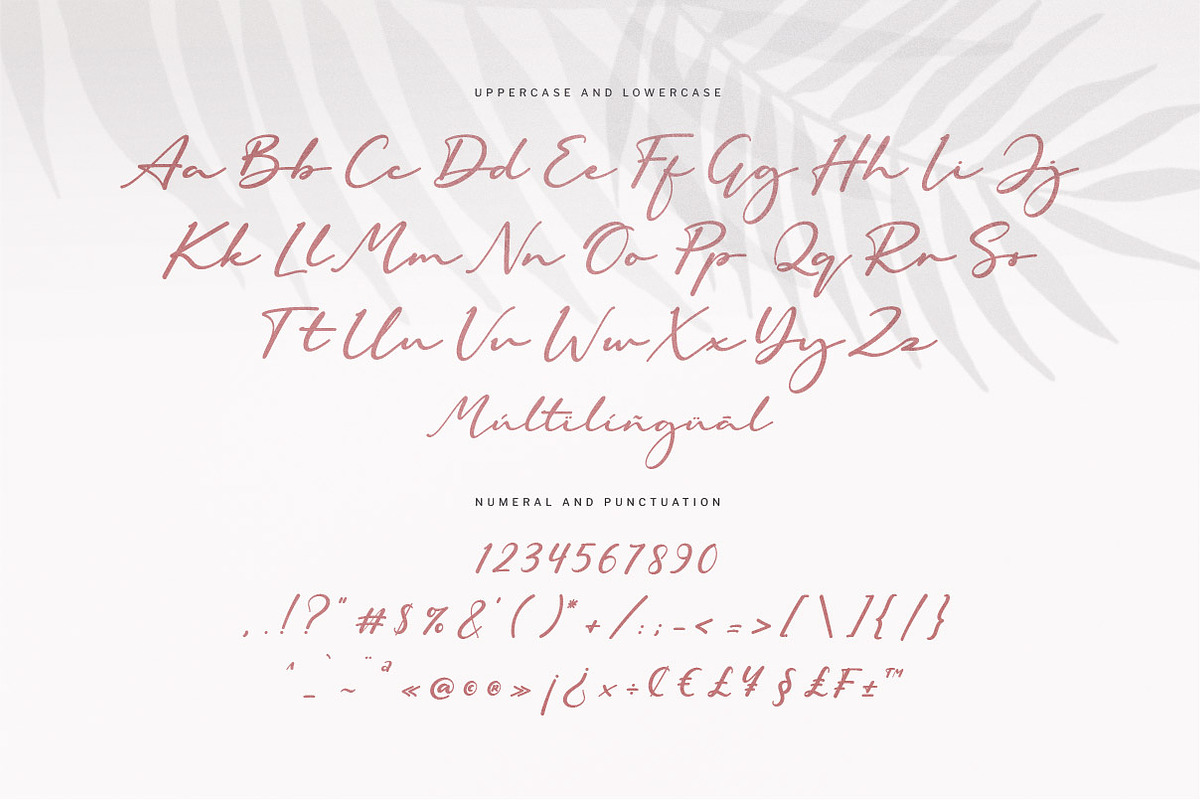 UPPERCASE AND LOWERCASE
Aa Bb Cc Dd Ee Ff Gg Hh Ii Jj
Kk Ll Mm Nn Oo Pp Qq Rr Ss
Tt Uu Vv Ww Xx Yy Zz
Múltïlíñgüāl
NUMERAL AND PUNCTUATION
1234567890
, . ! ? " # $ % & ' ( ) * + / : ; - < = > [ \ ] { | }
^ _ ` ~ ¨ ª « @ © ® » ¡ ¿ × ÷ ₡ € £ ¥ § ₤ ₣ ± ™